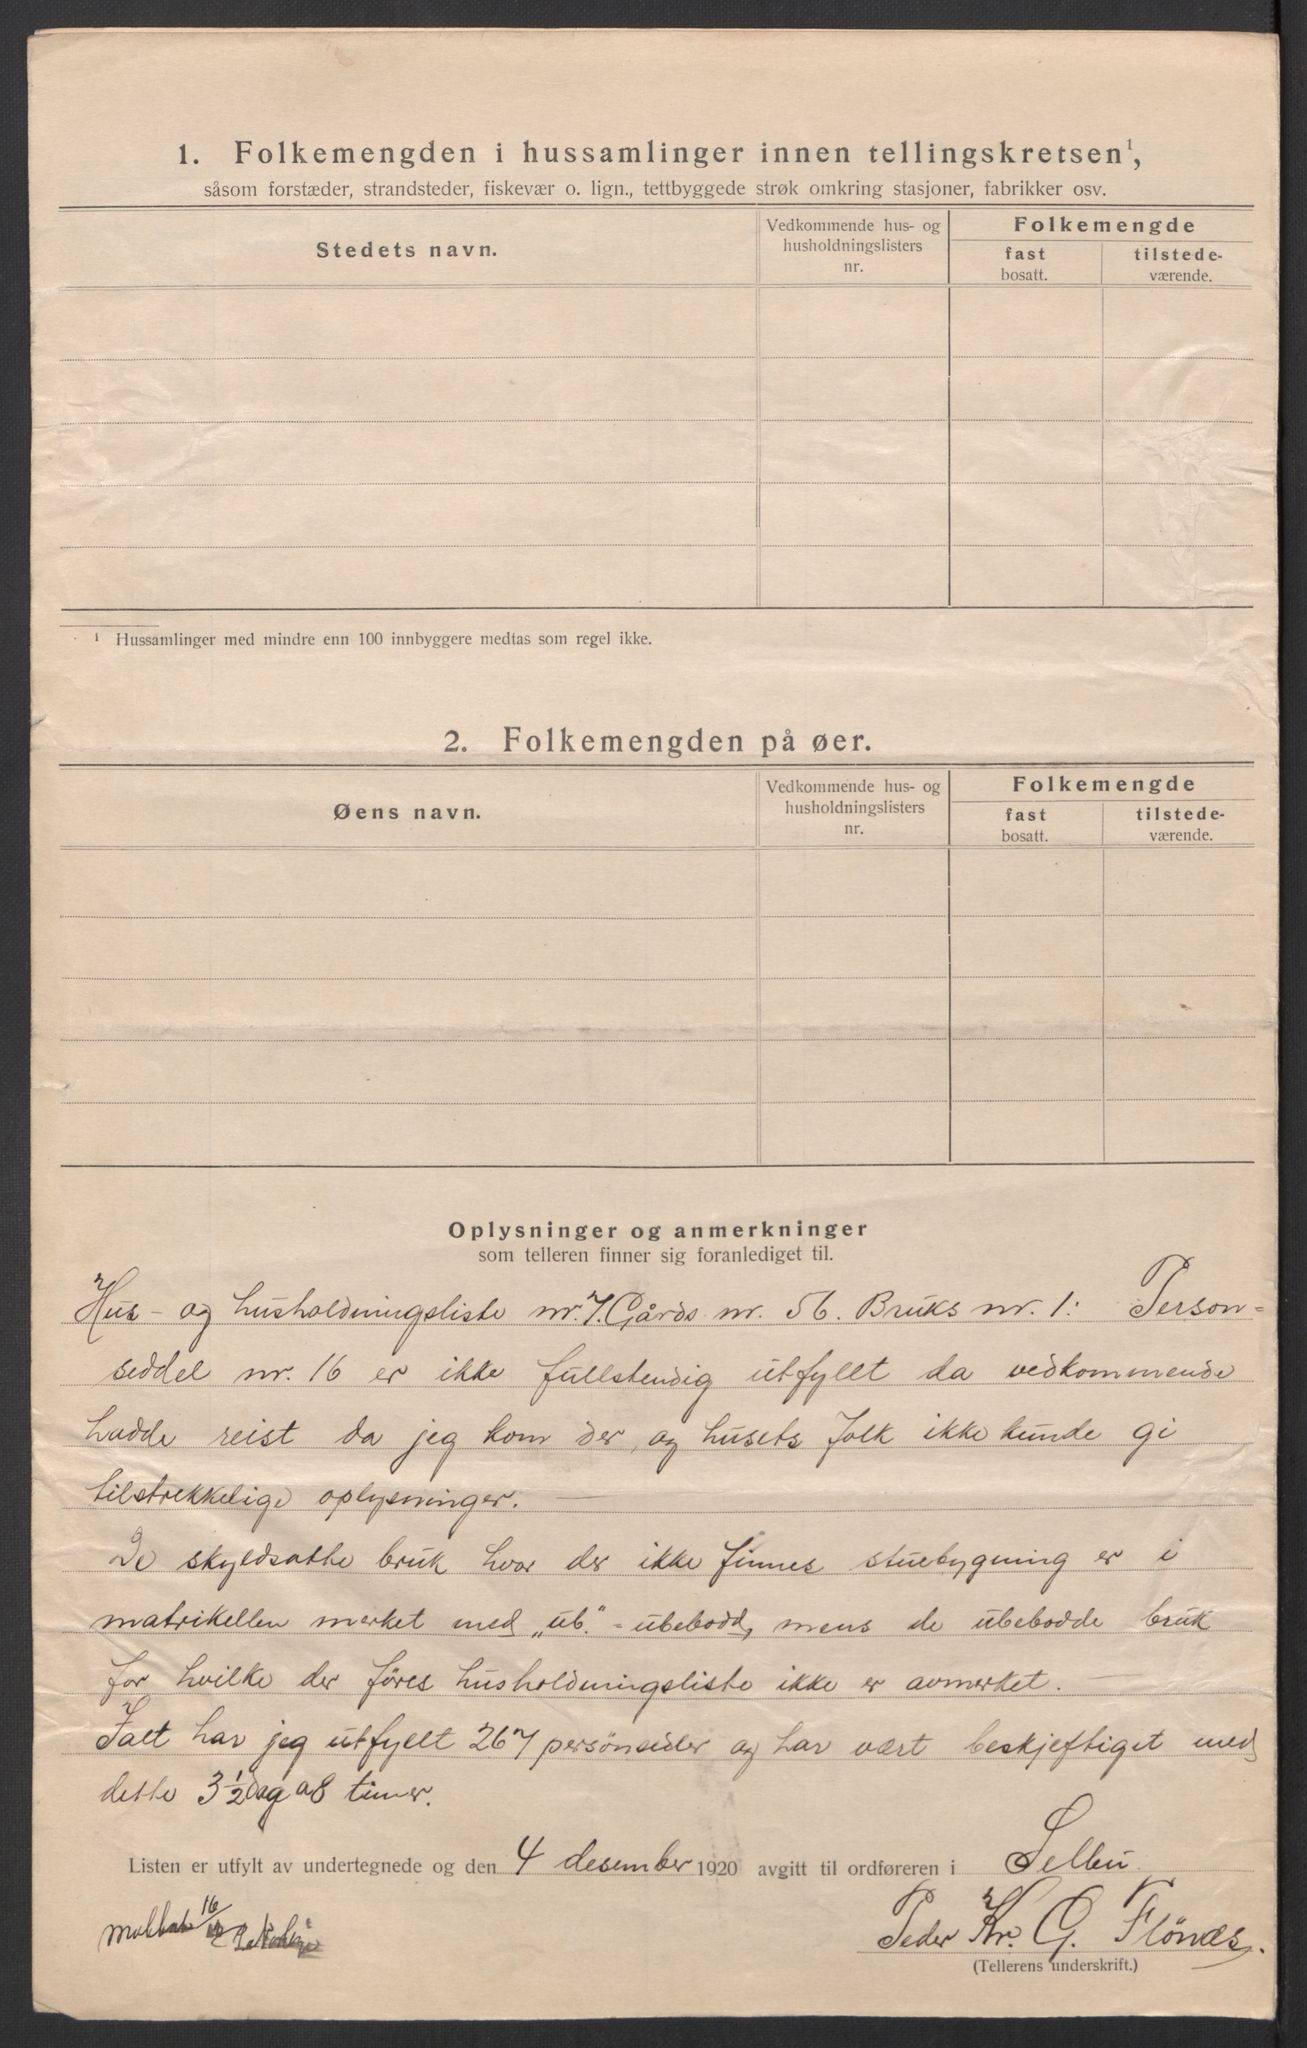 1. Folkemengden i hussamlinger innen tellingskretsen¹,
såsom forstæder, strandsteder, fiskevær o. lign., tettbyggede strøk omkring stasjoner, fabrikker osv.
Stedets navn.
Vedkommende hus- og
husholdningslisters
nr.
Folkemengde
fast
bosatt.
tilstede-
værende.
¹ Hussamlinger med mindre enn 100 innbyggere medtas som regel ikke.
2. Folkemengden på øer.
Øens navn.
Vedkommende hus- og
husholdningslisters
nr.
Folkemengde
fast
bosatt.
tilstede-
værende.
Oplysninger og anmerkninger
som telleren finner sig foranlediget til.
Hus- og husholdningsliste nr. 7. Gårds nr. 56. Bruks nr. 1: Person-
seddel nr. 16 er ikke fullstendig utfyllt da vedkommende
hadde reist da jeg kom der, og husets folk ikke kunde gi
tilstrekkelige oplysninger.
De skyldsatte bruk hvor der ikke finnes stuebygning er i
matrikellen merket med „ub." - ubebodd, mens de ubebodde bruk
for hvilke der föres husholdningsliste ikke er avmerket.
Ialt har jeg utfyllt 267 personsedler og har vært beskjeftiget med
dette 3 1/2 dag a 8 timer.
Listen er utfylt av undertegnede og den 4 desember 1920 avgitt til ordføreren i Selbu
16
Peder Kr. G. Flönes.
(Tellerens underskrift.)